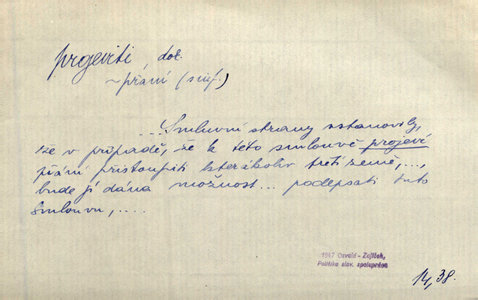 projeviti, dok.
~ přání (smf.)
... Smluvní strany ustanovily,
že v případě, že k této smlouvě projeví
přání přistoupiti kterákoliv třetí země, ...,
bude jí dána možnost ... podepsati tuto
smlouvu, ....
1947 Osvald - Zajíček,
Politika slov. spolupráce
14, 38.